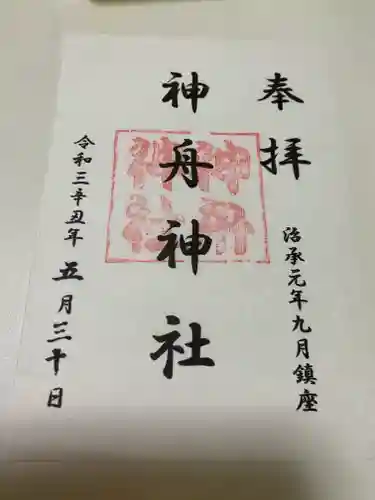 奉拝
治承元年九月鎮座
神舟神社
令和三辛丑年 五月三十日